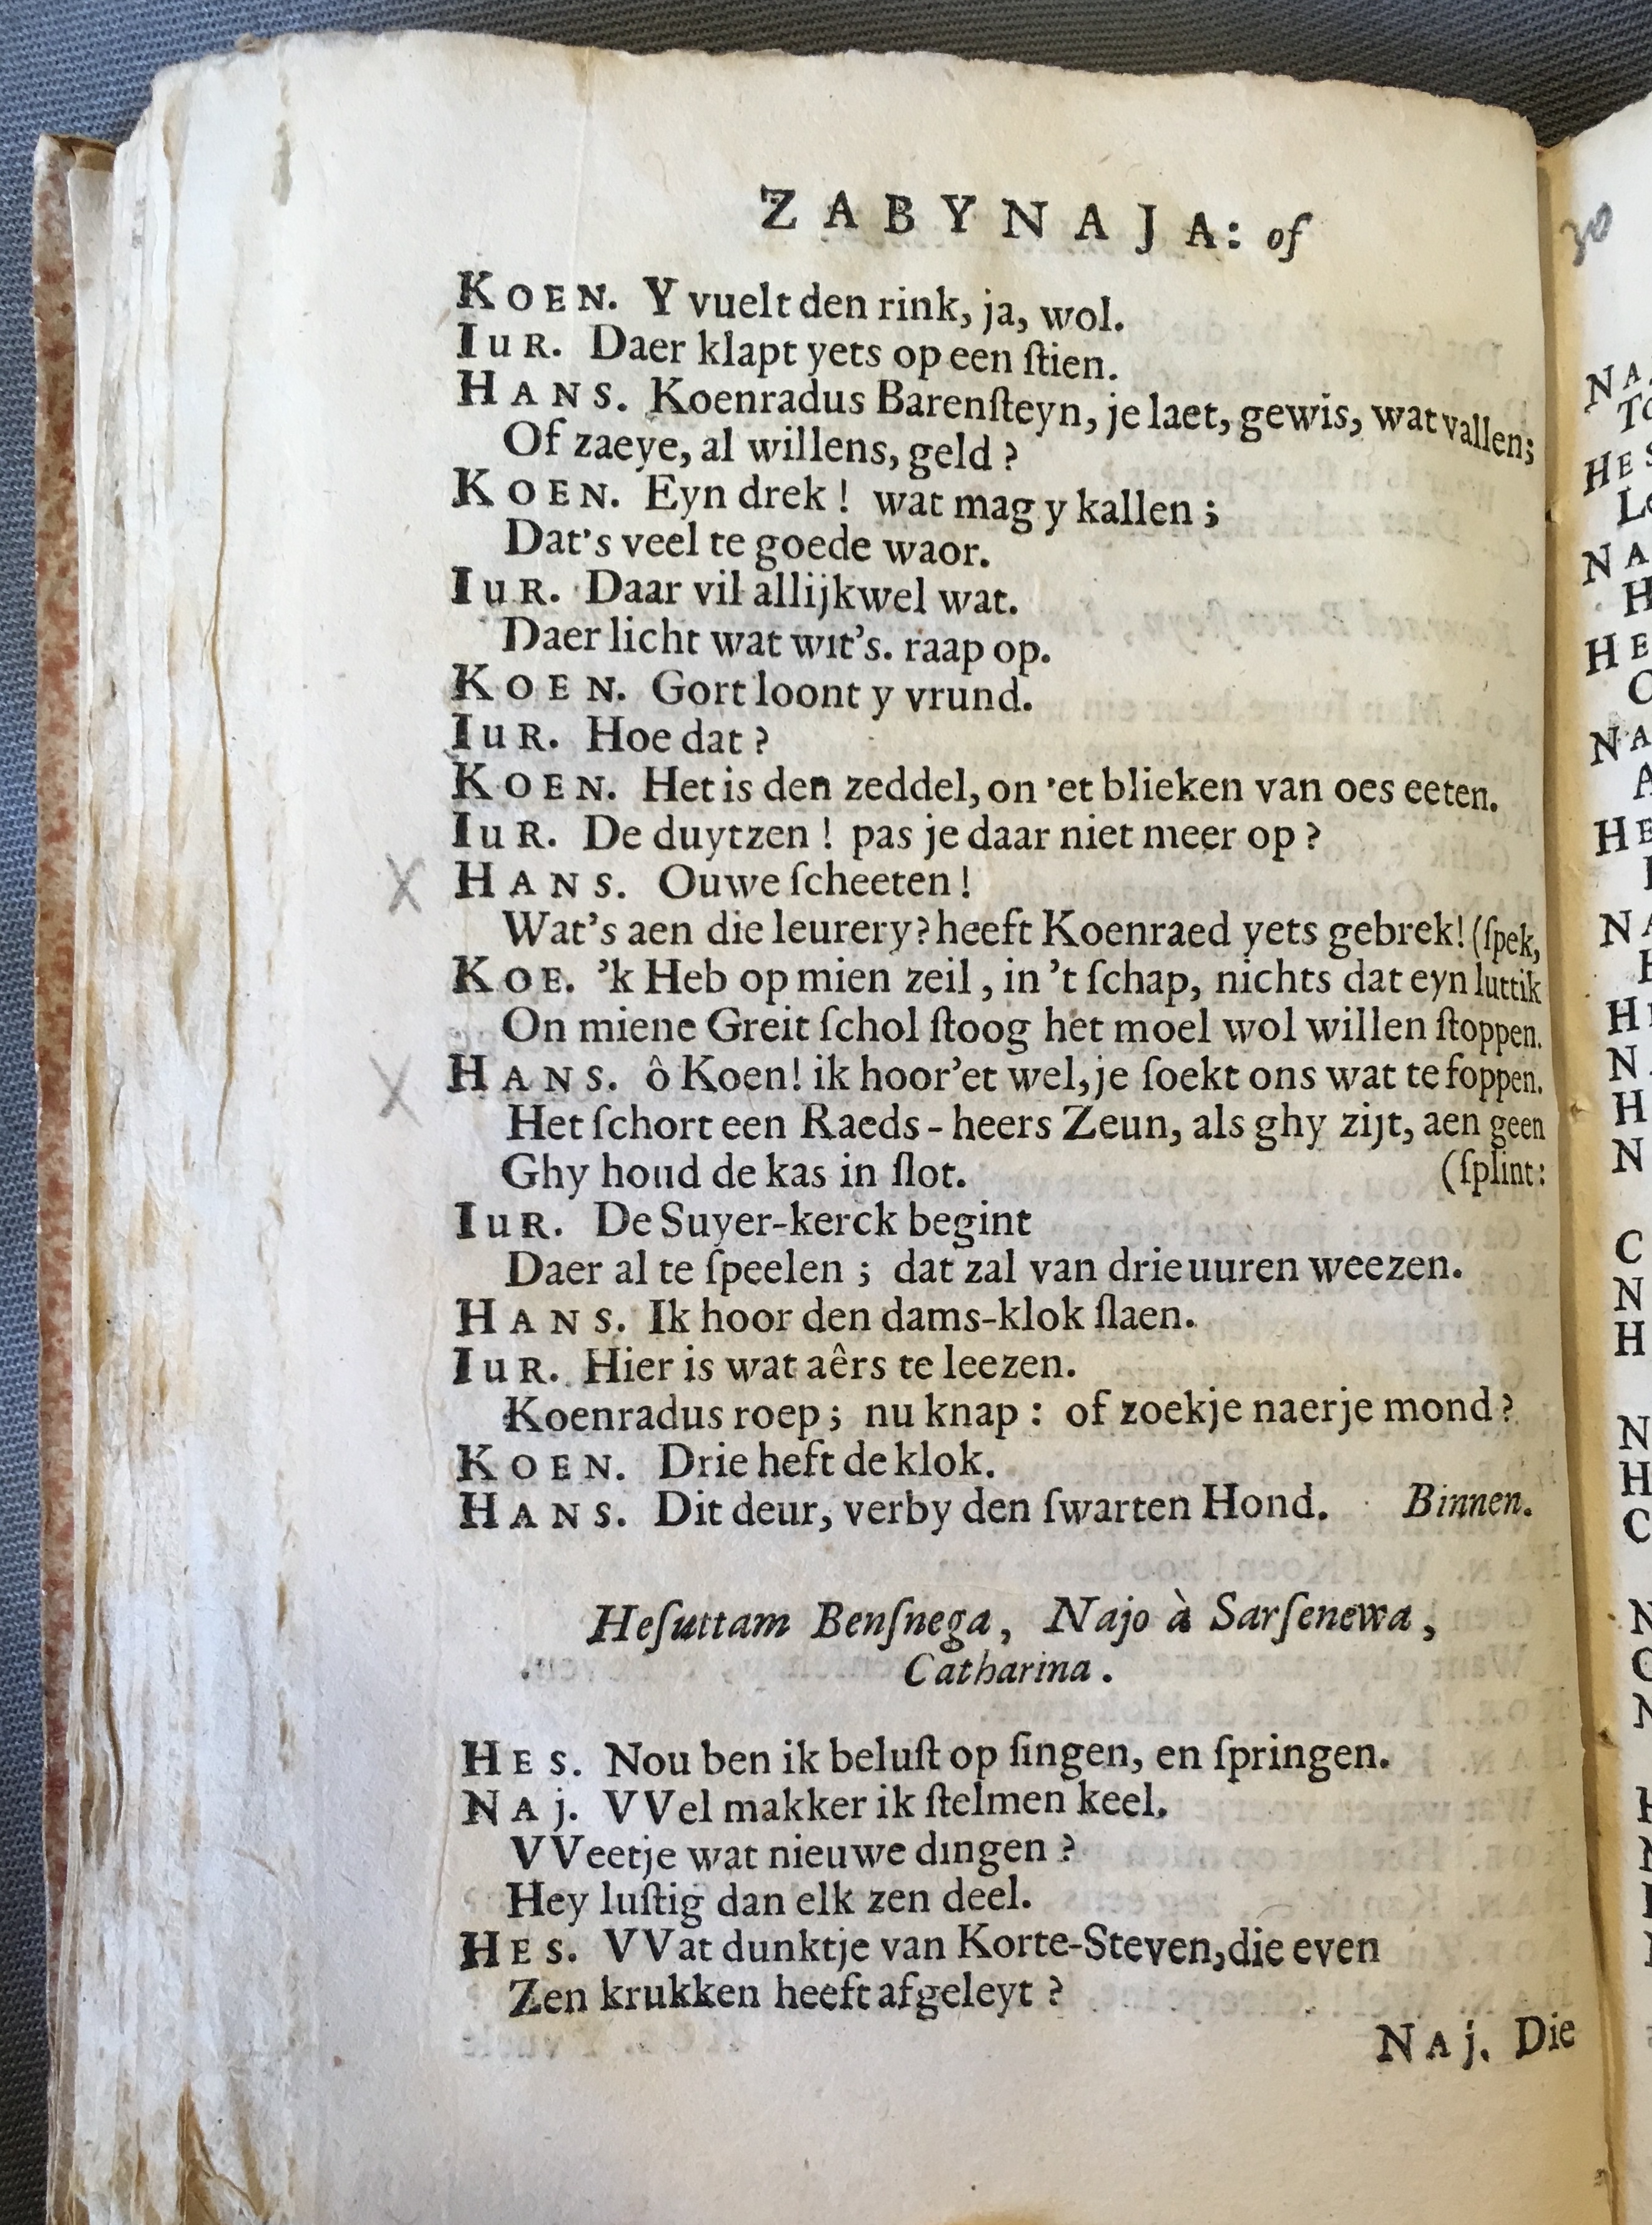 ZABYNAJA: of
KOEN. Y vuelt den rink, ja, wol.
IuR. Daer klapt yets op een ſtien.
HANS. Koenradus Barenſteyn, je laet, gewis, wat vallen;
Of zaeye, al willens, geld?
KOEN. Eyn drek! wat mag y kallen;
Dat's veel te goede waor.
IuR. Daar vil allijkwel wat.
Daer licht wat wit's. raap op.
KOEN. Gort loont y vrund.
IuR. Hoe dat?
KOEN. Het is den zeddel, on 'et blieken van oes eeten.
IuR. De duytzen! pas je daar niet meer op?
X HANS. Ouwe ſcheeten!
Wat's aen die leurery? heeft Koenraed yets gebrek! (ſpek,
KOE. 'k Heb op mien zeil, in 't ſchap, nichts dat eyn luttik
On miene Greit ſchol ſtoog het moel wol willen ſtoppen.
X HANS. ô Koen! ik hoor'et wel, je ſoekt ons wat te foppen.
Het ſchort een Raeds-heers Zeun, als ghy zijt, aen geen
Ghy houd de kas in ſlot. (ſplint:
IuR. De Suyer-kerck begint
Daer al te ſpeelen; dat zal van drie uuren weezen.
HANS. Ik hoor den dams-klok ſlaen.
IuR. Hier is wat aêrs te leezen.
Koenradus roep; nu knap: of zoekje naerje mond?
KOEN. Drie heft de klok.
HANS. Dit deur, verby den ſwarten Hond. Binnen.
Heſuttam Benſnega, Najo à Sarſenewa,
Catharina.
HES. Nou ben ik beluſt op ſingen, en ſpringen.
NAj. VVel makker ik ſtelmen keel.
VVeetje wat nieuwe dingen?
Hey luſtig dan elk zen deel.
HES. VVat dunktje van Korte-Steven, die even
Zen krukken heeft afgeleyt?
NAj. Die
30